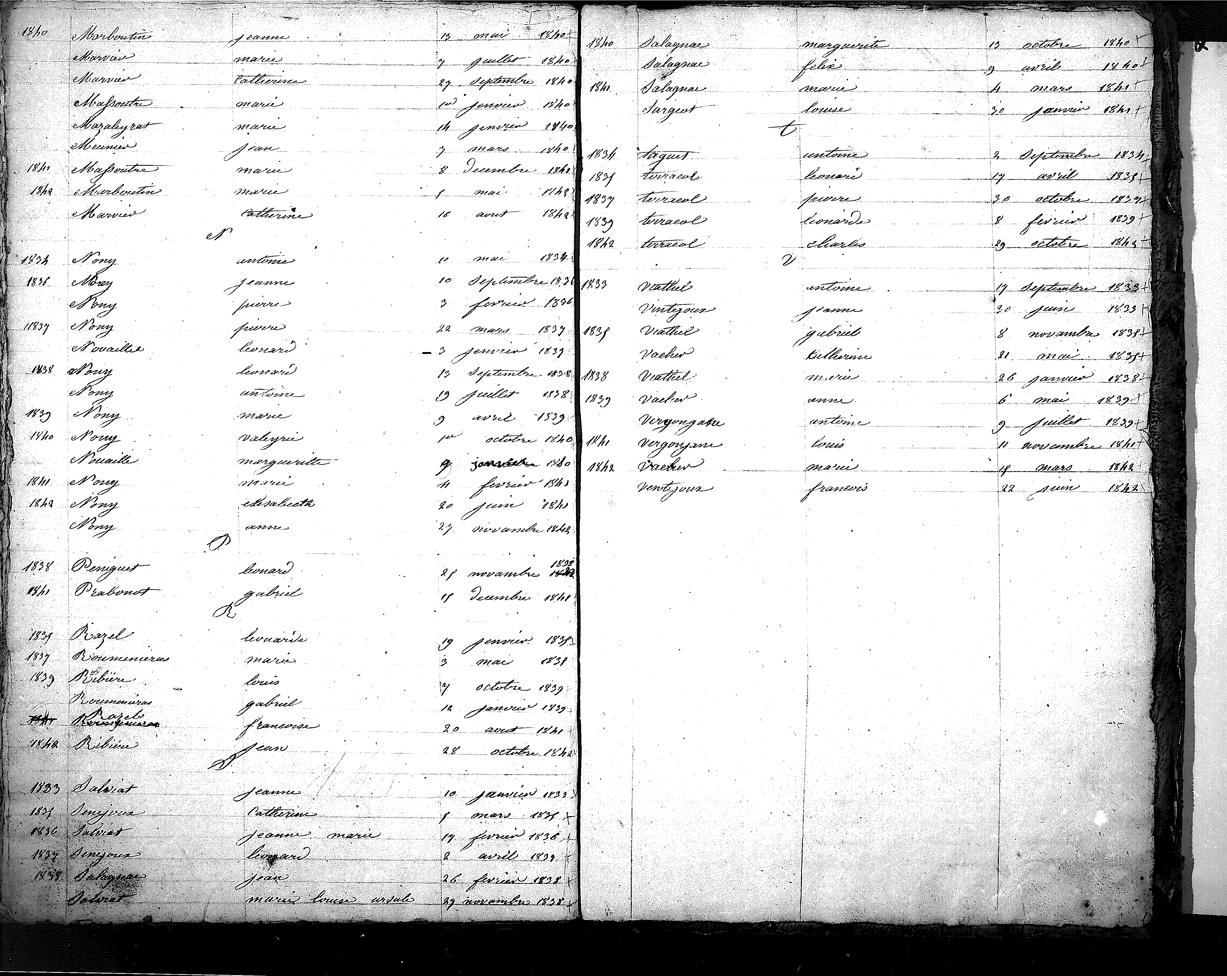 1840 Marboutin jeanne 13 mai 1840
Marvier marie 7 juillet 1840
Marvier Catherine 27 Septembre 1840
Massoutre marie 10 janvier 1840
Mazaleyrat marie 14 janvier 1840
Meunier jean 7 mars 1840
1841 Massoutre marie 8 decembre 1841
1842 Marboutin marie 5 mai 1842
Marvier Catherine 16 aout 1842
N
1834 Nony antoine 10 mai 1834
1836 Nony jeanne 10 Septembre 1836
Nony pierre 3 fevrier 1836
1837 Nony pierre 22 mars 1837
Nouaille leonard 3 janvier 1839
1838 Nony leonard 13 Septembre 1838
Nony antoine 29 juillet 1838
1839 Nony marie 9 avril 1839
1840 Nony valeyrie 10 octobre 1840
Nouaille marguerite 9 janvier 1840
1841 Nony marie 11 fevrier 1841
1842 Nony elisabeth 20 juin 1841
Nony anne 27 novembre 1842
P
1838 Peniguet leonard 25 novembre 1838
1841 Prabonot gabriel 15 decembre 1841
R
1835 Razel leonarde 19 janvier 1835
1837 Roumenieras marie 3 mai 1838
1839 Ribiere louis 7 octobre 1839
Roumenieras gabriel 12 janvier 1839
Razel francoise 20 aout 1841
1842 Ribiere jean 28 octobre 1842
S
1833 Salviat jeanne 10 janvier 1833
1835 Senejoux Catherine 5 mars 1835
1836 Salviat jeanne marie 17 fevrier 1836
1837 Senejoux leonard 2 avril 1837
1838 Salagnac jean 26 fevrier 1838
Salviat marie louise ursule 29 novembre 1838
1840 Salagnac marguerite 13 octobre 1840
Salagnac felix 9 avril 1840
1841 Salagnac marie 4 mars 1841
Sargest louise 30 janvier 1841
t
1834 taguet antoine 2 Septembre 1834
1835 terracol leonard 17 avril 1835
1837 terracol pierre 30 octobre 1837
1839 terracol leonarde 8 fevrier 1839
1842 terracol charles 29 octobre 1842
V
1833 Viathel antoine 17 Septembre 1833
Ventejoux jeanne 30 juin 1833
1835 Viathel gabriel 8 novembre 1835
Vacher 21 mai 1835
1838 Viathel marie 26 janvier 1838
1839 Vacher anne 6 mai 1839
Vergongane antoine 9 juillet 1839
1841 Vergonjane louis 11 novembre 1841
1842 Vacher marie 18 mars 1842
Ventejoux francois 22 juin 1842